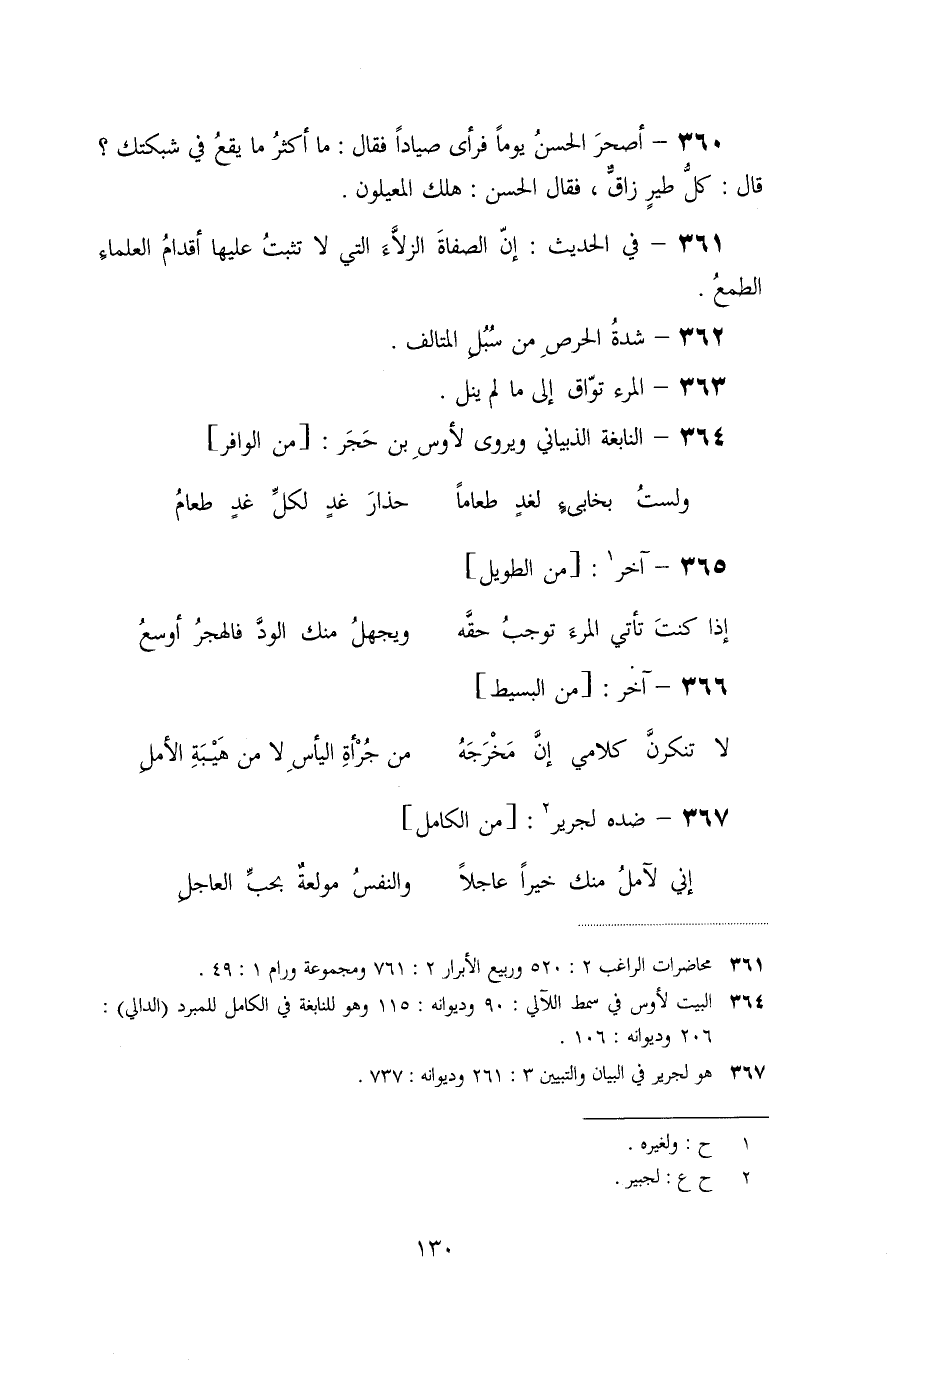 ٣٦٠ – أصحرَ الحسنُ يوماً فرأى صياداً فقال : ما أكثرُ ما يقعُ في شبكتك ؟
قال : كلُّ طيرٍ زاقٍّ ، فقال الحسن : هلك المعيلون .
٣٦١ – في الحديث : إنّ الصفاةَ الزلاَّءَ التي لا تثبتُ عليها أقدامُ العلماءِ
الطمعُ .
٣٦٢ – شدةُ الحرصِ من سُبُلِ المتالف .
٣٦٣ – المرء توّاق إلى ما لم ينل .
٣٦٤ – النابغة الذبياني ويروى لأوسِ بن حَجَر : [من الوافر]
ولستُ بخابىءٍ لغدٍ طعاماً حذارَ غدٍ لكلِّ غدٍ طعامُ
٣٦٥ – آخر١ : [من الطويل]
إذا كنتَ تأتي المرءَ توجبُ حقَّه ويجهلُ منك الودَّ فالهجرُ أوسعُ
٣٦٦ – آخر : [من البسيط]
لا تنكرنَّ كلامي إنَّ مَخْرَجَهُ من جُرْأةِ اليأسِ لا من هَيْبَةِ الأملِ
٣٦٧ – ضده لجرير٢ : [من الكامل]
إني لآملُ منك خيراً عاجلاً والنفسُ مولعةٌ بحبِّ العاجلِ
٣٦١ محاضرات الراغب ٢ : ٥٢٠ وربيع الأبرار ٢ : ٧٦١ ومجموعة ورام ١ : ٤٩ .
٣٦٤ البيت لأوس في سمط اللآلي : ٩٠ وديوانه : ١١٥ وهو للنابغة في الكامل للمبرد (الدالي) :
٢٠٦ وديوانه : ١٠٦ .
٣٦٧ هو لجرير في البيان والتبيين ٣ : ٢٦١ وديوانه : ٧٣٧ .
١ ح : ولغيره .
٢ ح ع : لجبير .
١٣٠